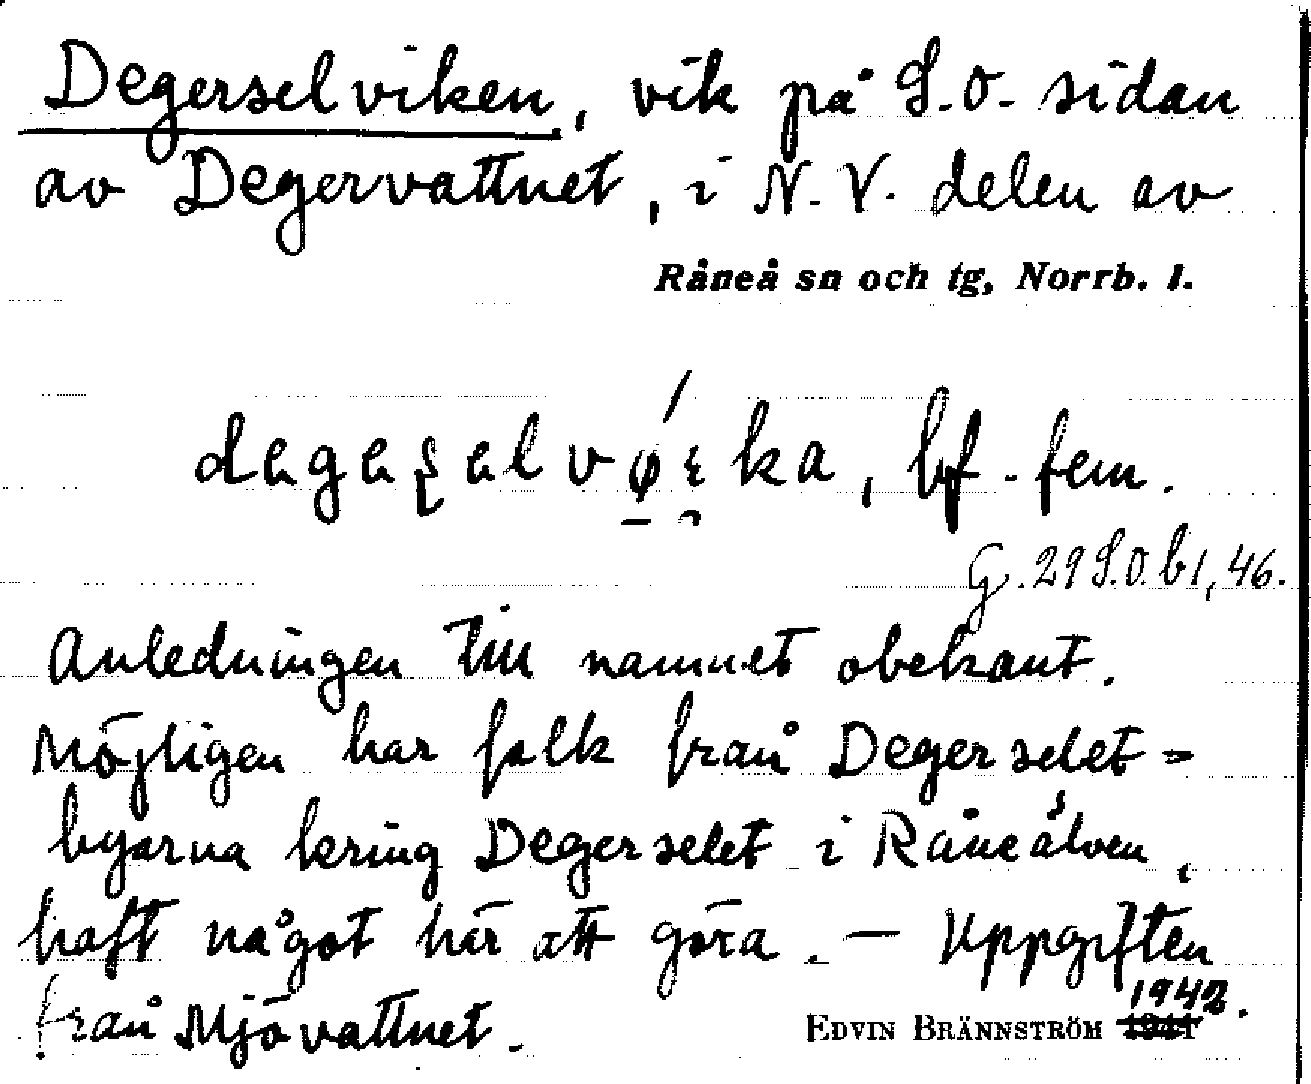 Degerselviken, vik på S.O. sidan
av Degervattnet, i N.V. delen av
Råneå sn och tg, Norrb. l.
bf. fem.
G. 29 S.O. b1, 46.
Anledningen till namnet obekant.
Möjligen har folk från Degerselet-
byarna kring Degerselet i Råneälven,
haft något här att göra. — Uppgiften
från Mjövattnet.
1942.
EDVIN BRÄNNSTRÖM 1941